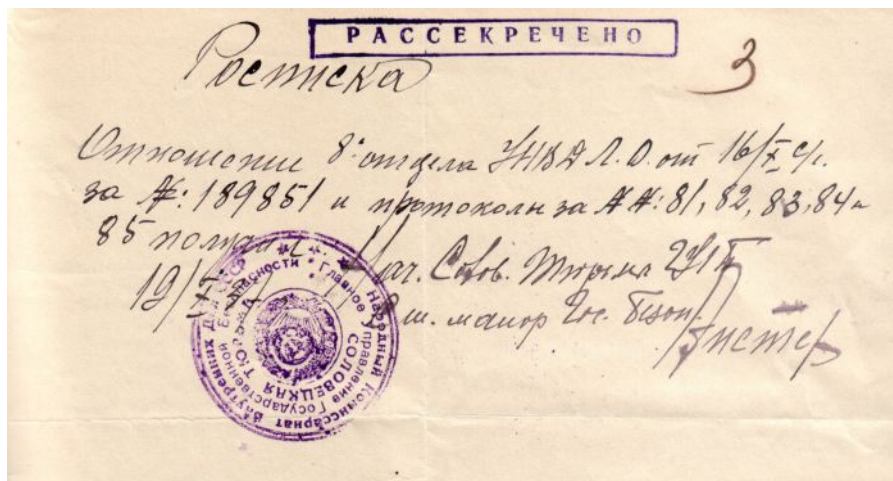 РАССЕКРЕЧЕНО
3
Росписка
Отношение 8º отдела УНКВД Л.О. от 16/X с/г.
за №: 189851 и протоколы за №№: 81, 82, 83, 84 и
85 получил.
19/X
Нач. Солов. Тюрьмы ГУГБ
ст. майор Гос. Безоп.
Народный Комиссариат Внутренних Дел СССР
Главное Управление Государственной Безопасности
СОЛОВЕЦКАЯ ТЮРЬМА